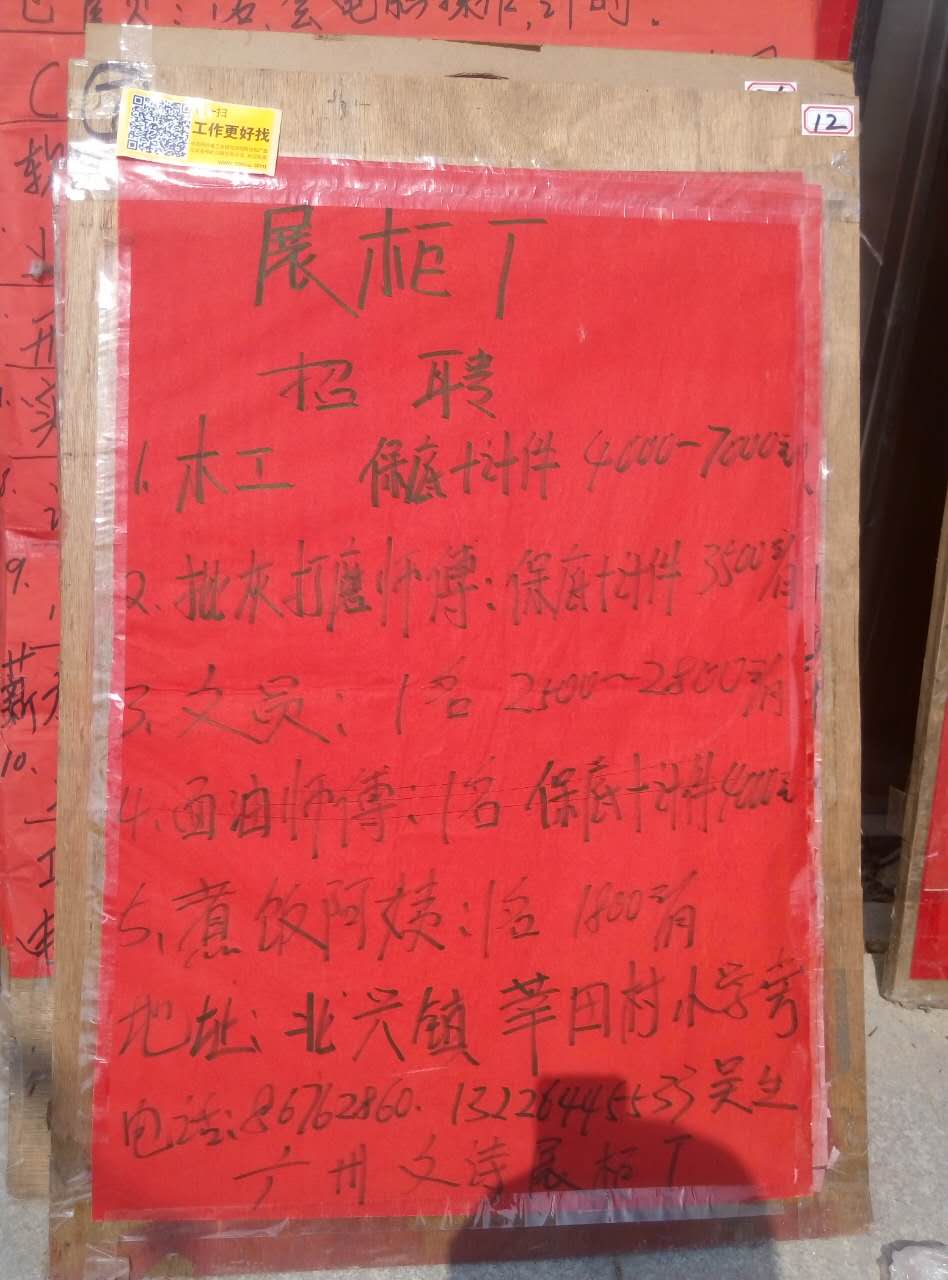 工作更好找
12
展柜厂
招聘
1. 木工 保底+计件 4000-7000元
2、批灰打磨师傅:保底+计件 3500元/月
3、文员:1名 2500~2800元/月
4、面油师傅:1名 保底+计件4000元
5、煮饭阿姨:1名 1800元/月
地址:北兴镇 莘田村小学旁
电话:86762860. 13226445533 吴生
广州文诗展柜厂